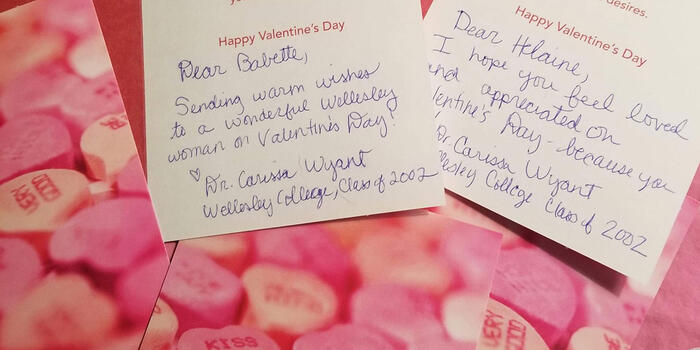 Happy Valentine's Day
Dear Babette,
Sending warm wishes
to a wonderful Wellesley
woman on Valentine's Day!
♡ Dr. Carissa Wyant
Wellesley College, Class of 2002
desires.
Happy Valentine's Day
Dear Helaine,
I hope you feel loved
and appreciated on
Valentine's Day - because you
Dr. Carissa Wyant
College Class of 2002
KISS
VERY
GOOD